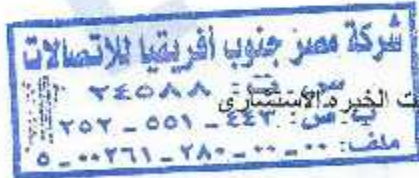 شركة مصر جنوب أفريقيا للاتصالات
س. ت: ٢٤٥٨٨
ت الخبره الاستشارى
ب. ض: ٤٤٣ _ ٥٥١ _ ٢٥٢
ملف: ٠٠ _ ٠٠ _ ٢٨٠ _ ٠٠٢٦١ _ ٥